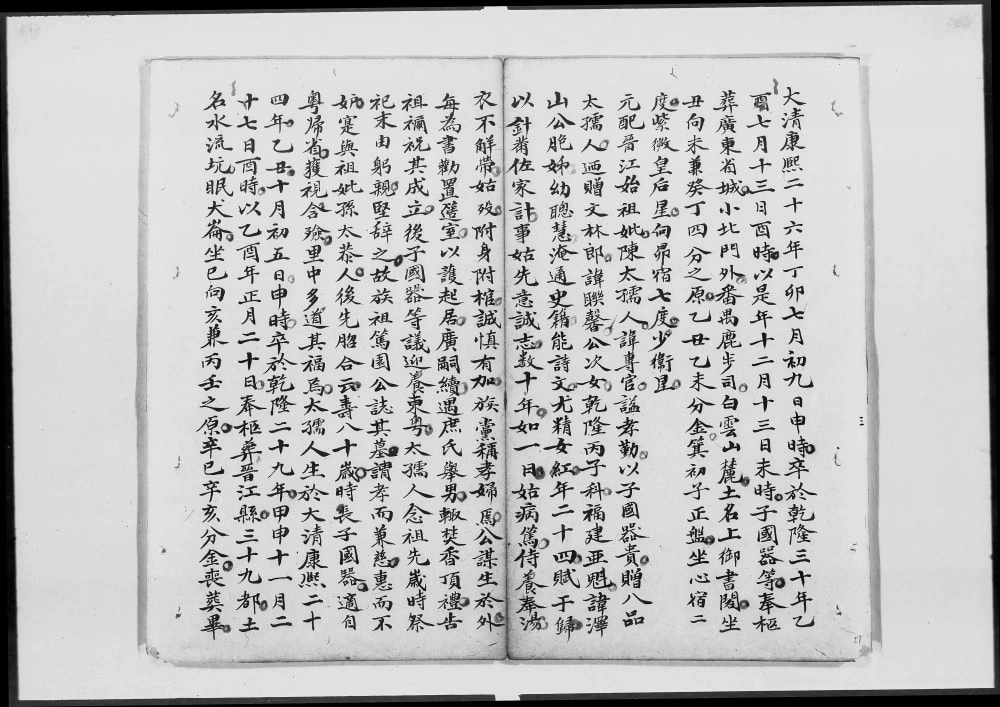 大清康熙二十六年丁卯七月初九日申時卒於乾隆三十年乙
酉七月十三日酉時以是年十二月十三日未時子國器等奉柩
葬廣東省城小北門外番禺鹿步司白雲山麓土名上御書閣坐
丑向未兼癸丁四分之原乙丑乙未分金箕初子正盤坐心宿二
度紫微皇后星向昴宿七度少衞星
元配晉江始祖妣陳太孺人諱專官謚孝勤以子國器貴贈八品
太孺人廼贈文林郎諱聯馨公次女乾隆丙子科福建亞魁諱澤
山公胞姊幼聰慧淹通史籍能詩文尤精女紅年二十四賦于歸
以針黹佐家計事姑先意誠志数十年如一日姑病篤侍養奉湯
衣不解帶姑殁附身附棺誠慎有加族黨稱孝婦焉公謀生於外
每為書勸置簉室以護起居廣嗣續遇庶氏舉男輙焚香頂禮告
祖禰祝其成立後子國器等議迎養東粤太孺人念祖先嵗時祭
祀未由躬親堅辞之故族祖篤園公誌其墓謂孝而兼慈惠而不
妒寔與祖妣孫太恭人後先脗合云壽八十嵗時長子國器適自
粤帰省獲視含殮里中多道其福焉太孺人生於大清康熙二十
四年乙丑十月初五日申時卒於乾隆二十九年甲申十一月二
十七日酉時以乙酉年正月二十日奉柩葬晉江縣三十九都土
名水流坑眠犬崙坐巳向亥兼丙壬之原辛巳辛亥分金喪葬畢
三